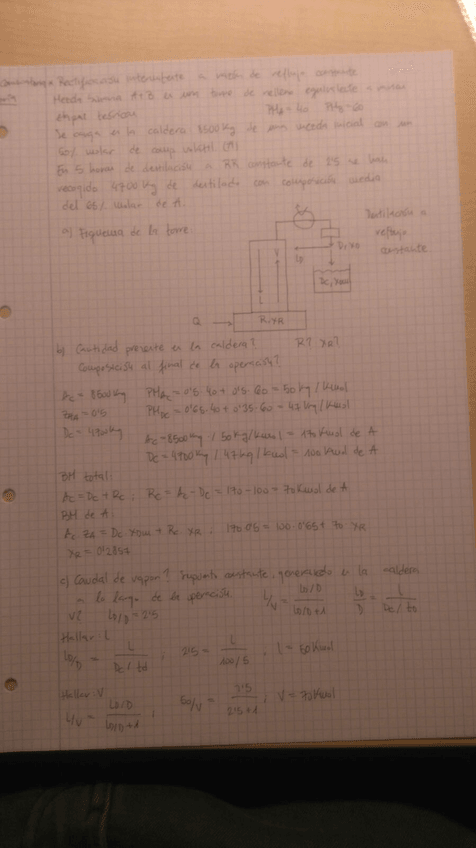 Rectificación intermitente a razón de reflujo constante
Mezcla binaria A+B en una torre de relleno equivalente a
etapas teóricas PMA=40 PMB=60
Se carga en la caldera 8500 Kg de una mezcla inicial con un
50% molar de comp volátil (A)
En 5 horas de destilación a RR constante de 2'5 se han
recogido 4700 Kg de destilado con composición media
del 65% molar de A.
a) Esquema de la torre.
Destilación a
reflujo
constante
V
L
LD
D, xD
Dc, xDm
Q
R, xR
b) Cantidad presente en la caldera? R? xR?
Composición al final de la operación?
Ac = 8500 Kg PMAc = 0'5·40 + 0'5·60 = 50 Kg/Kmol
zA = 0'5 PMDc = 0'65·40 + 0'35·60 = 47 Kg/Kmol
Dc = 4700 Kg
Ac = 8500 Kg / 50 Kg/Kmol = 170 Kmol de A
Dc = 4700 Kg / 47 Kg/Kmol = 100 Kmol de A
BM total:
Ac = Dc + Rc ; Rc = Ac - Dc = 170 - 100 = 70 Kmol de A
BM de A:
Ac · zA = Dc · xDm + Rc · xR ; 170·0'5 = 100·0'65 + 70 · xR
xR = 0'2857
c) Caudal de vapor? supuesto constante, generado en la caldera
a lo largo de la operación.
V? LD/D = 2'5
L/V = LD/D / LD/D + 1
LD/D = L / Dc / td
Hallar L
LD/D = L / Dc / td ; 2'5 = L / 100/5 ; L = 50 Kmol
Hallar V
L/V = LD/D / LD/D + 1 ; 50/V = 2'5 / 2'5 + 1 ; V = 70 Kmol